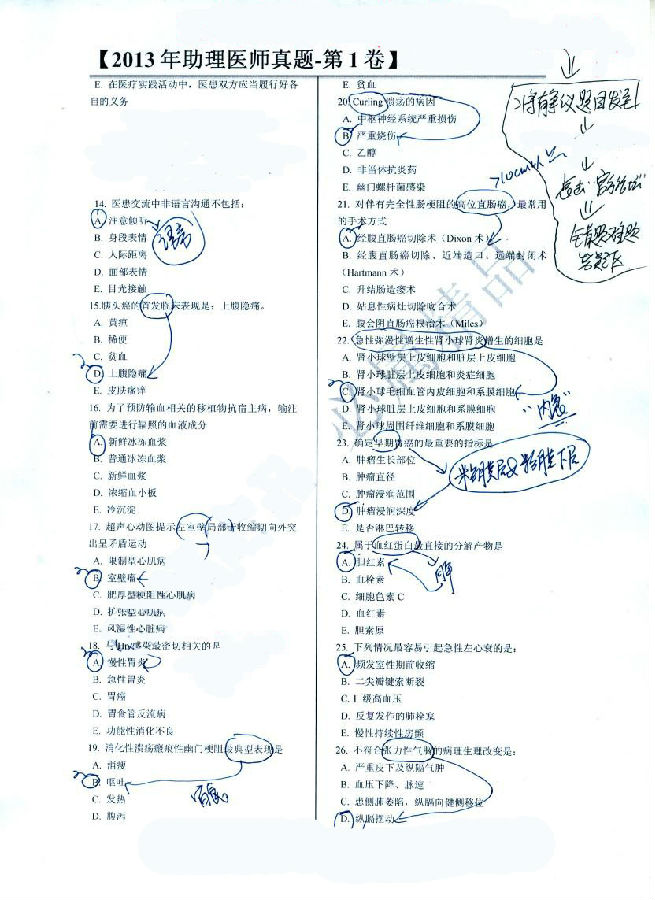 【2013年助理医师真题-第1卷】
E 在医疗实践活动中，医患双方应当履行好各
自的义务
14. 医患交流中非语言沟通不包括：
A 注意倾听
语病
B 身段表情
C 人际距离
D 面部表情
E 目光接触
15.胰头癌的首发临床表现是：上腹隐痛。
A. 黄疸
B. 稀便
C. 贫血
D. 上腹隐痛
E. 皮肤瘙痒
16. 为了预防输血相关的移植物抗宿主病，输注
前需要进行辐照的血液成分
A. 新鲜冰冻血浆
B. 普通冰冻血浆
C. 新鲜血浆
D. 浓缩血小板
E. 冷沉淀
17. 超声心动图提示左室局部收缩期向外突
出呈矛盾运动
A. 限制型心肌病
B. 室壁瘤
C. 肥厚型梗阻性心肌病
D. 扩张型心肌病
E. 风湿性心脏病
18. 与Hp感染最密切相关的是
A. 慢性胃炎
B. 急性胃炎
C. 胃癌
D. 胃食管反流病
E. 功能性消化不良
19. 消化性溃疡瘢痕性幽门梗阻最典型表现是
A. 消瘦
B. 呕吐
C. 发热
D. 腹泻
E 贫血
20. Curling 溃疡的病因
A. 中枢神经系统严重损伤
B. 严重烧伤
C. 乙醇
D. 非甾体抗炎药
E. 幽门螺杆菌感染
21. 对伴有完全性肠梗阻的高位直肠癌，最常用
的手术方式
A. 经腹直肠癌切除术（Dixon 术）
B. 经腹直肠癌切除、近端造口、远端封闭术
（Hartmann 术）
C. 升结肠造瘘术
D. 姑息性病灶切除吻合术
E. 腹会阴直肠癌根治术（Miles）
22. 急性弥漫性增生性肾小球肾炎增生的细胞是
A. 肾小球壁层上皮细胞和脏层上皮细胞
B. 肾小球脏层上皮细胞和炎症细胞
C. 肾小球毛细血管内皮细胞和系膜细胞
D. 肾小球脏层上皮细胞和系膜细胞
E. 肾小球周围纤维细胞和系膜细胞
23. 确定早期胃癌的最重要的指标是
A. 肿瘤生长部位
B. 肿瘤直径
C. 肿瘤浸润范围
D. 肿瘤浸润深度
E. 是否淋巴转移
粘膜层及粘膜下层
24. 属于血红蛋白最直接的分解产物是
A. 胆红素
B. 血栓素
C. 细胞色素 C
D. 血红素
E. 胆素原
25. 下列情况最容易引起急性左心衰的是：
A. 频发室性期前收缩
B. 二尖瓣键索断裂
C. I 级高血压
D. 反复发作的肺栓塞
E. 慢性持续性房颤
26. 不符合张力性气胸的病理生理改变是：
A. 严重皮下及纵隔气肿
B. 血压下降、脉速
C. 患侧肺萎陷，纵隔向健侧移位
D. 纵隔摆动